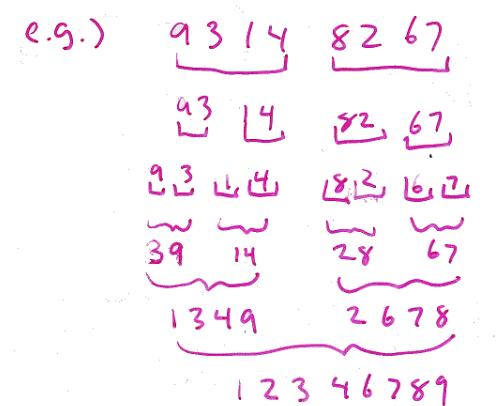 e.g.) 9 3 1 4 8 2 6 7
93 14 82 67
9 3 1 4 8 2 6 7
39 14 28 67
1349 2678
1 2 3 4 6 7 8 9